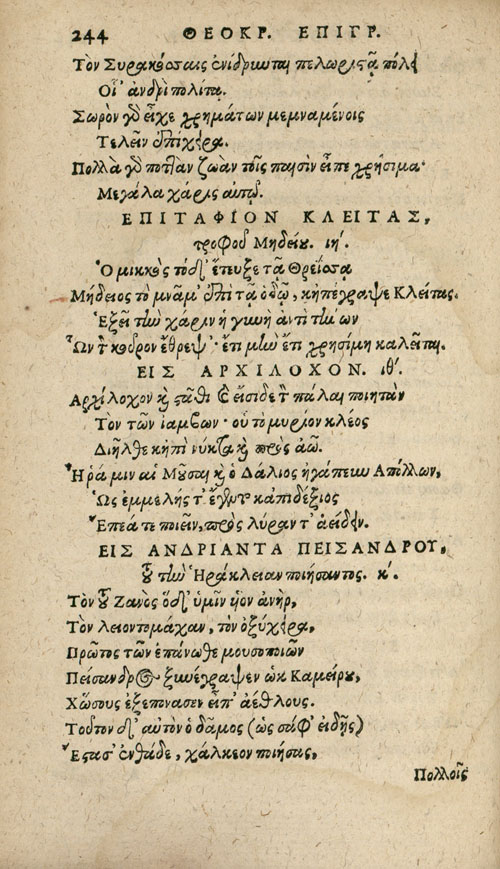 244 ΘΕΟΚΡ. ΕΠΙΓΡ.
Τὸν Συρακόσαις ἐνίδρυνται πελωρὶς τᾷ πόλει
Οἷ' ἀνδρὶ πολίτᾳ.
Σωρὸν γὰρ εἶχε χρημάτων μεμναμένοις
Τελεῖν ἐπίχειρα.
Πολλὰ γὰρ ποττὰν ζωὰν τοῖς παισὶν εἶπε χρήσιμα·
Μεγάλα χάρις αὐτῷ.
ΕΠΙΤΑΦΙΟΝ ΚΛΕΙΤΑΣ,
τροφοῦ Μηδείου. ιη'.
Ὁ μικκὸς τόδ' ἔτευξε τᾷ Θρεΐσσᾳ
Μήδειος τὸ μνᾶμ' ἐπὶ τᾷ ὁδῷ, κἠπέγραψε Κλείτας.
Ἑξεῖ τὴν χάριν ἡ γυνὴ ἀντὶ τήνων
Ὧν τὸν κοῦρον ἔθρεψ'· ἔτι μὴν ἔτι χρησίμη καλεῖται.
ΕΙΣ ΑΡΧΙΛΟΧΟΝ. ιθ'.
Αρχίλοχον καὶ στᾶθι καὶ εἴσιδε τὸν πάλαι ποιητὰν
Τὸν τῶν ἰάμβων· οὗ τὸ μυρίον κλέος
Διῆλθε κἠπὶ νύκτα καὶ πρὸς ἀῶ.
Ἦρά μιν αἱ Μοῦσαι καὶ ὁ Δάλιος ἠγάπευν Απόλλων,
Ὡς ἐμμελής τ' ἔγεντο κἀπιδέξιος
Ἔπεά τε ποιεῖν, πρὸς λύραν τ' ἀείδειν.
ΕΙΣ ΑΝΔΡΙΑΝΤΑ ΠΕΙΣΑΝΔΡΟΥ,
τοῦ τὴν Ἡράκλειαν ποιήσαντος. κ'.
Τὸν τοῦ Ζανὸς ὅδ' ὑμῖν υἱὸν ἀνὴρ,
Τὸν λειοντομάχαν, τὸν ὀξύχειρα,
Πρῶτος τῶν ἐπάνωθε μουσοποιῶν
Πείσανδρος ξυνέγραψεν ὡκ Καμείρου,
Χὤσους ἐξεπόνασεν εἶπ' ἀέθλους.
Τοῦτον δ' αὐτὸν ὁ δᾶμος (ὡς σάφ' εἰδῇς)
Ἔστασ' ἐνθάδε, χάλκεον ποιήσας,
Πολλοῖς